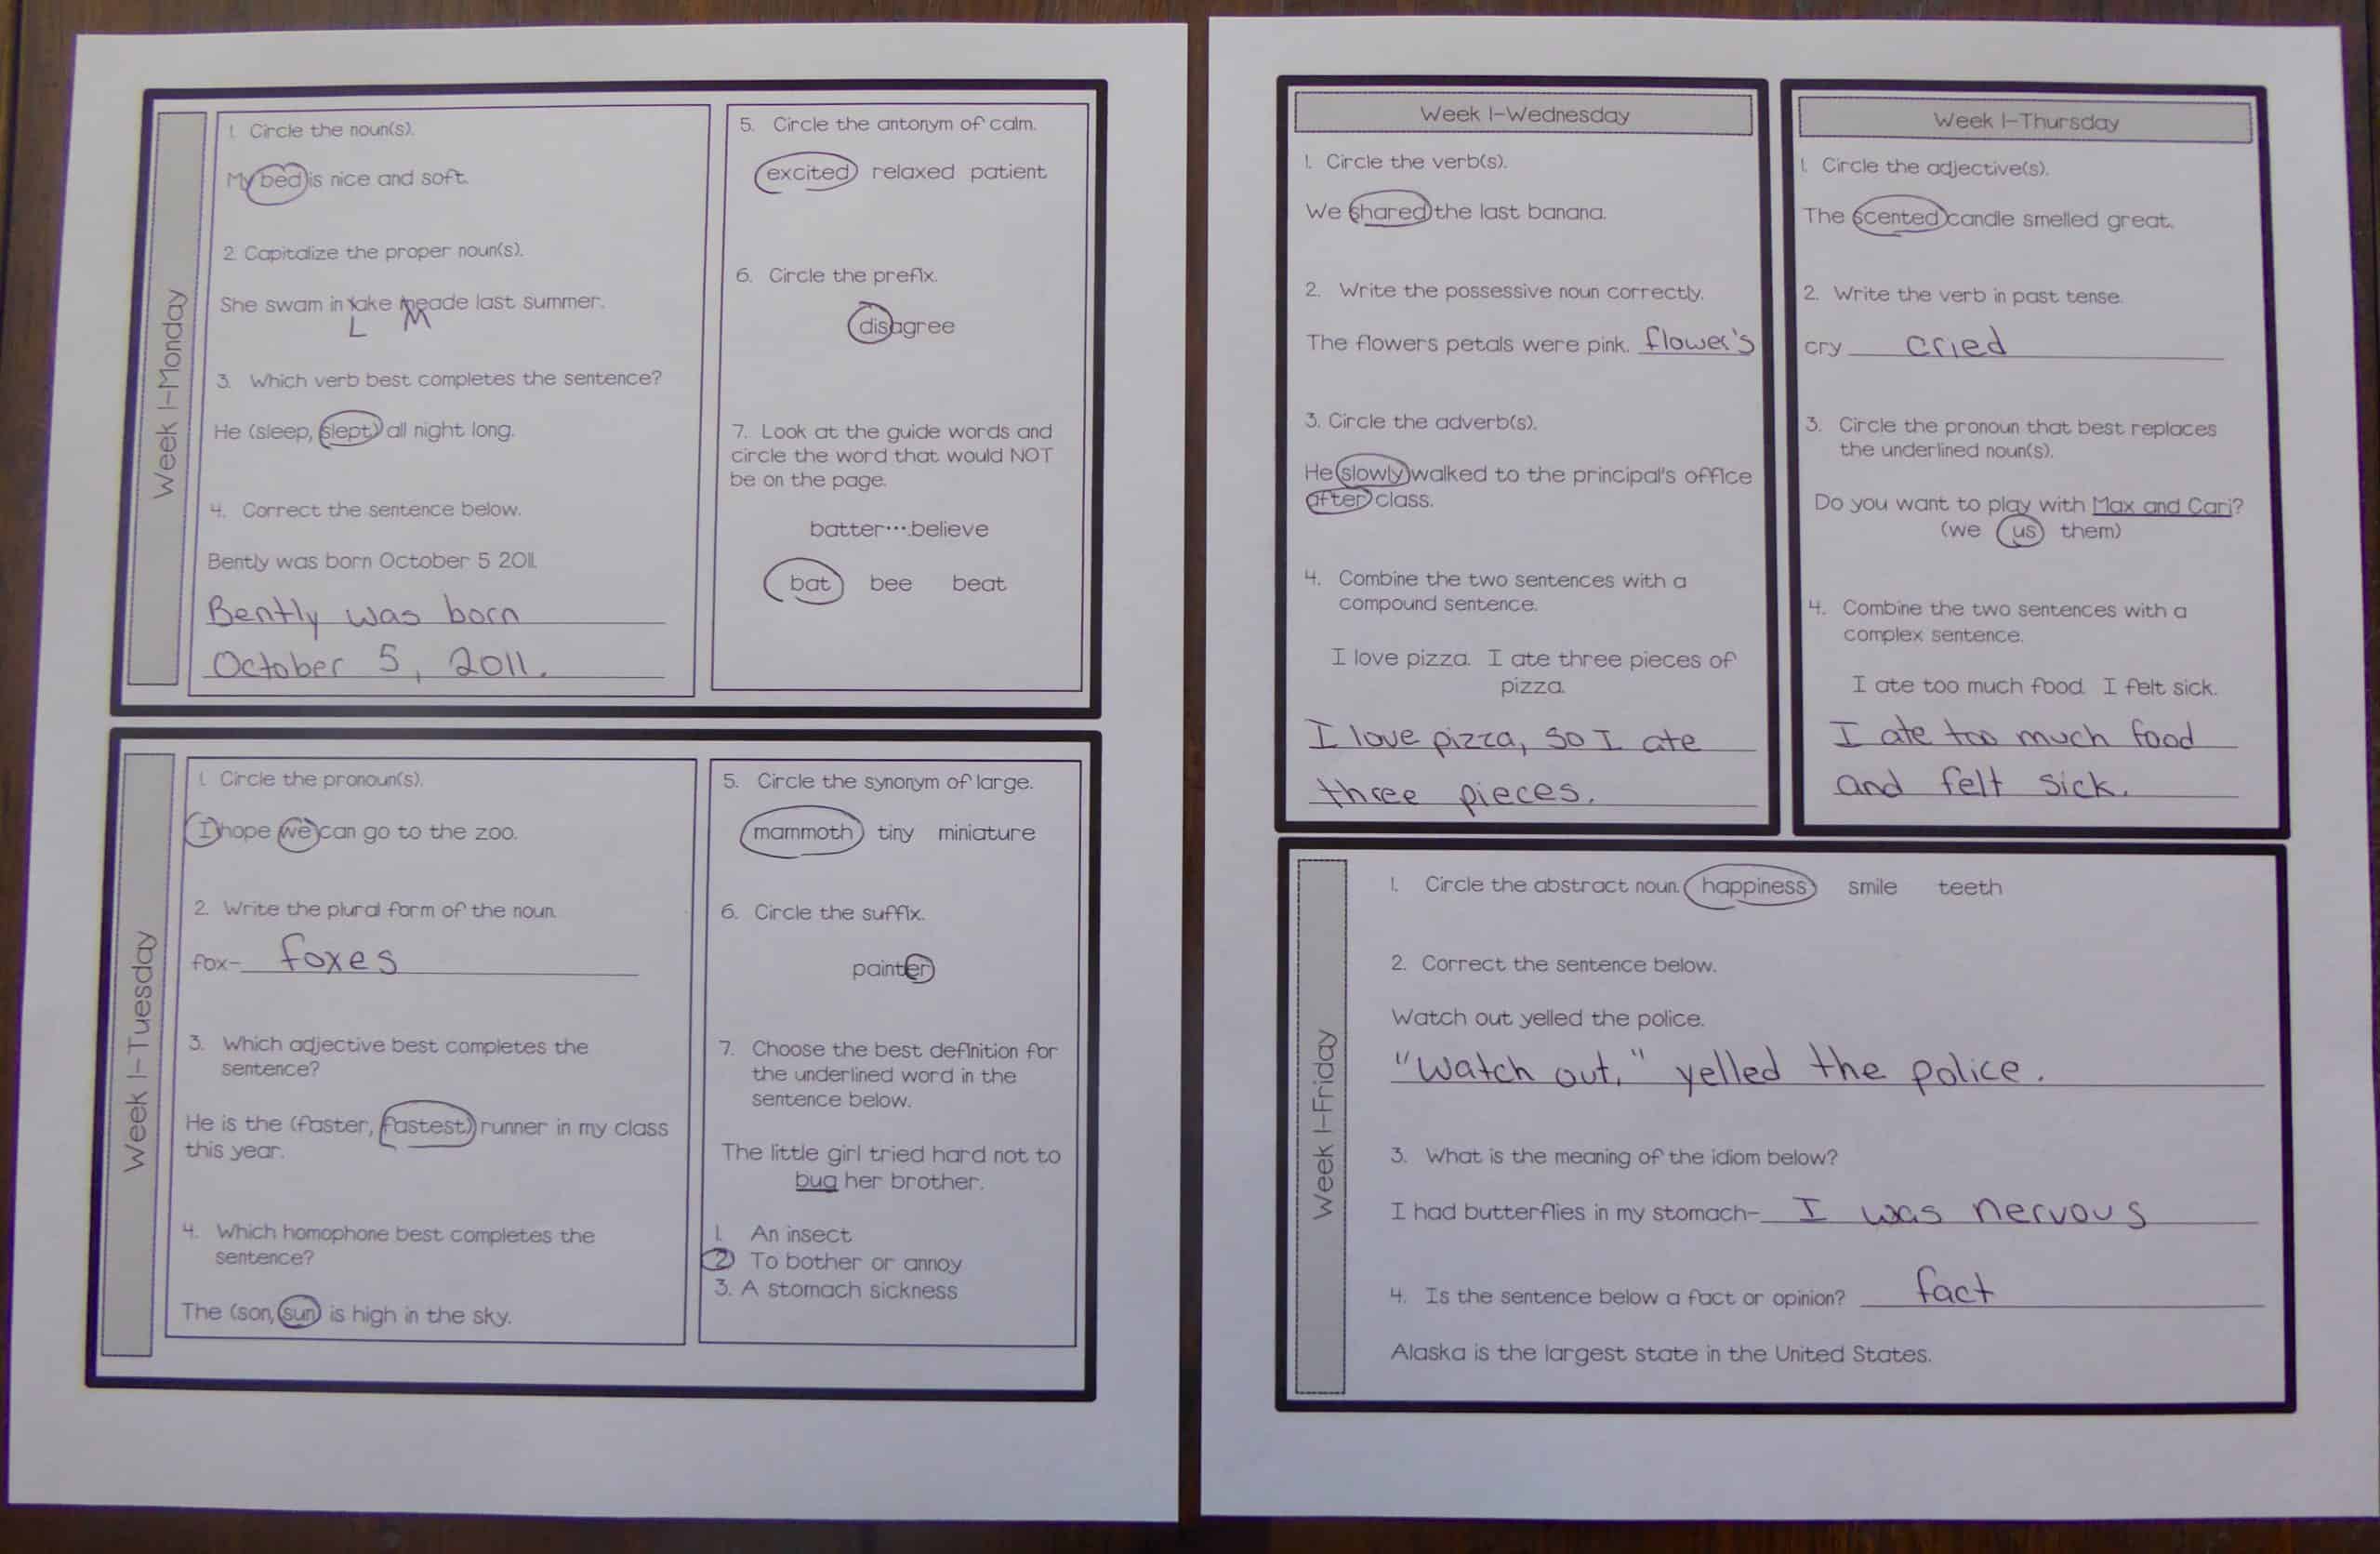 Week 1-Monday
1. Circle the noun(s).
My bed is nice and soft.
2. Capitalize the proper noun(s).
She swam in lake meade last summer.
L M
3. Which verb best completes the sentence?
He (sleep, slept) all night long.
4. Correct the sentence below.
Bently was born October 5 2011.
Bently was born
October 5, 2011.
5. Circle the antonym of calm.
excited relaxed patient
6. Circle the prefix.
disagree
7. Look at the guide words and
circle the word that would NOT
be on the page.
batter....believe
bat bee beat
Week 1-Tuesday
1. Circle the pronoun(s).
I hope we can go to the zoo.
2. Write the plural form of the noun.
fox- foxes
3. Which adjective best completes the
sentence?
He is the (faster, fastest) runner in my class
this year.
4. Which homophone best completes the
sentence?
The (son, sun) is high in the sky.
5. Circle the synonym of large.
mammoth tiny miniature
6. Circle the suffix.
painter
7. Choose the best definition for
the underlined word in the
sentence below.
The little girl tried hard not to
bug her brother.
1. An insect
2. To bother or annoy
3. A stomach sickness
Week 1-Wednesday
1. Circle the verb(s).
We shared the last banana.
2. Write the possessive noun correctly.
The flowers petals were pink. flower's
3. Circle the adverb(s).
He slowly walked to the principal's office
after class.
4. Combine the two sentences with a
compound sentence.
I love pizza. I ate three pieces of
pizza.
I love pizza, so I ate
three pieces.
Week 1-Thursday
1. Circle the adjective(s).
The scented candle smelled great.
2. Write the verb in past tense.
cry cried
3. Circle the pronoun that best replaces
the underlined noun(s).
Do you want to play with Max and Cari?
(we us them)
4. Combine the two sentences with a
complex sentence.
I ate too much food. I felt sick.
I ate too much food
and felt sick.
Week 1-Friday
1. Circle the abstract noun. happiness smile teeth
2. Correct the sentence below.
Watch out yelled the police.
"Watch out," yelled the police.
3. What is the meaning of the idiom below?
I had butterflies in my stomach- I was nervous
4. Is the sentence below a fact or opinion? fact
Alaska is the largest state in the United States.